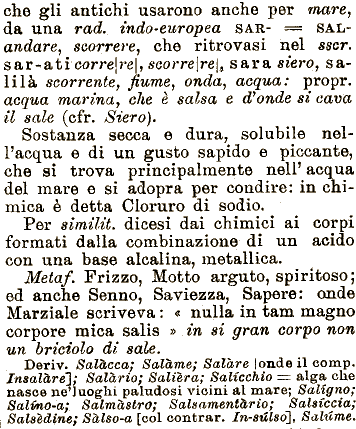 che gli antichi usarono anche per mare,
da una rad. indo-europea SAR- = SAL-
andare, scorrere, che ritrovasi nel sscr.
sar-ati corre|re|, scorre|re|, sara siero, sa-
lilà scorrente, fiume, onda, acqua: propr.
acqua marina, che è salsa e d'onde si cava
il sale (cfr. Siero).
Sostanza secca e dura, solubile nel-
l'acqua e di un gusto sapido e piccante,
che si trova principalmente nell'acqua
del mare e si adopra per condire: in chi-
mica è detta Cloruro di sodio.
Per similit. dicesi dai chimici ai corpi
formati dalla combinazione di un acido
con una base alcalina, metallica.
Metaf. Frizzo, Motto arguto, spiritoso;
ed anche Senno, Saviezza, Sapere: onde
Marziale scriveva: « nulla in tam magno
corpore mica salis » in si gran corpo non
un briciolo di sale.
Deriv. Salàcca; Salàme; Salàre |onde il comp.
Insalàre]; Salàrio; Salièra; Salìcchio = alga che
nasce ne' luoghi paludosi vicini al mare; Salìgno;
Salìno-a; Salmàstro; Salsamentàrio; Salsìccia;
Salsèdine; Sàlso-a [col contrar. In-sùlso], Salùme.